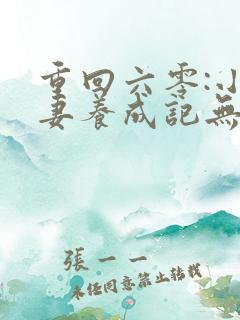 重回六零:
妻養成記無
張一一
未經同意禁止轉載